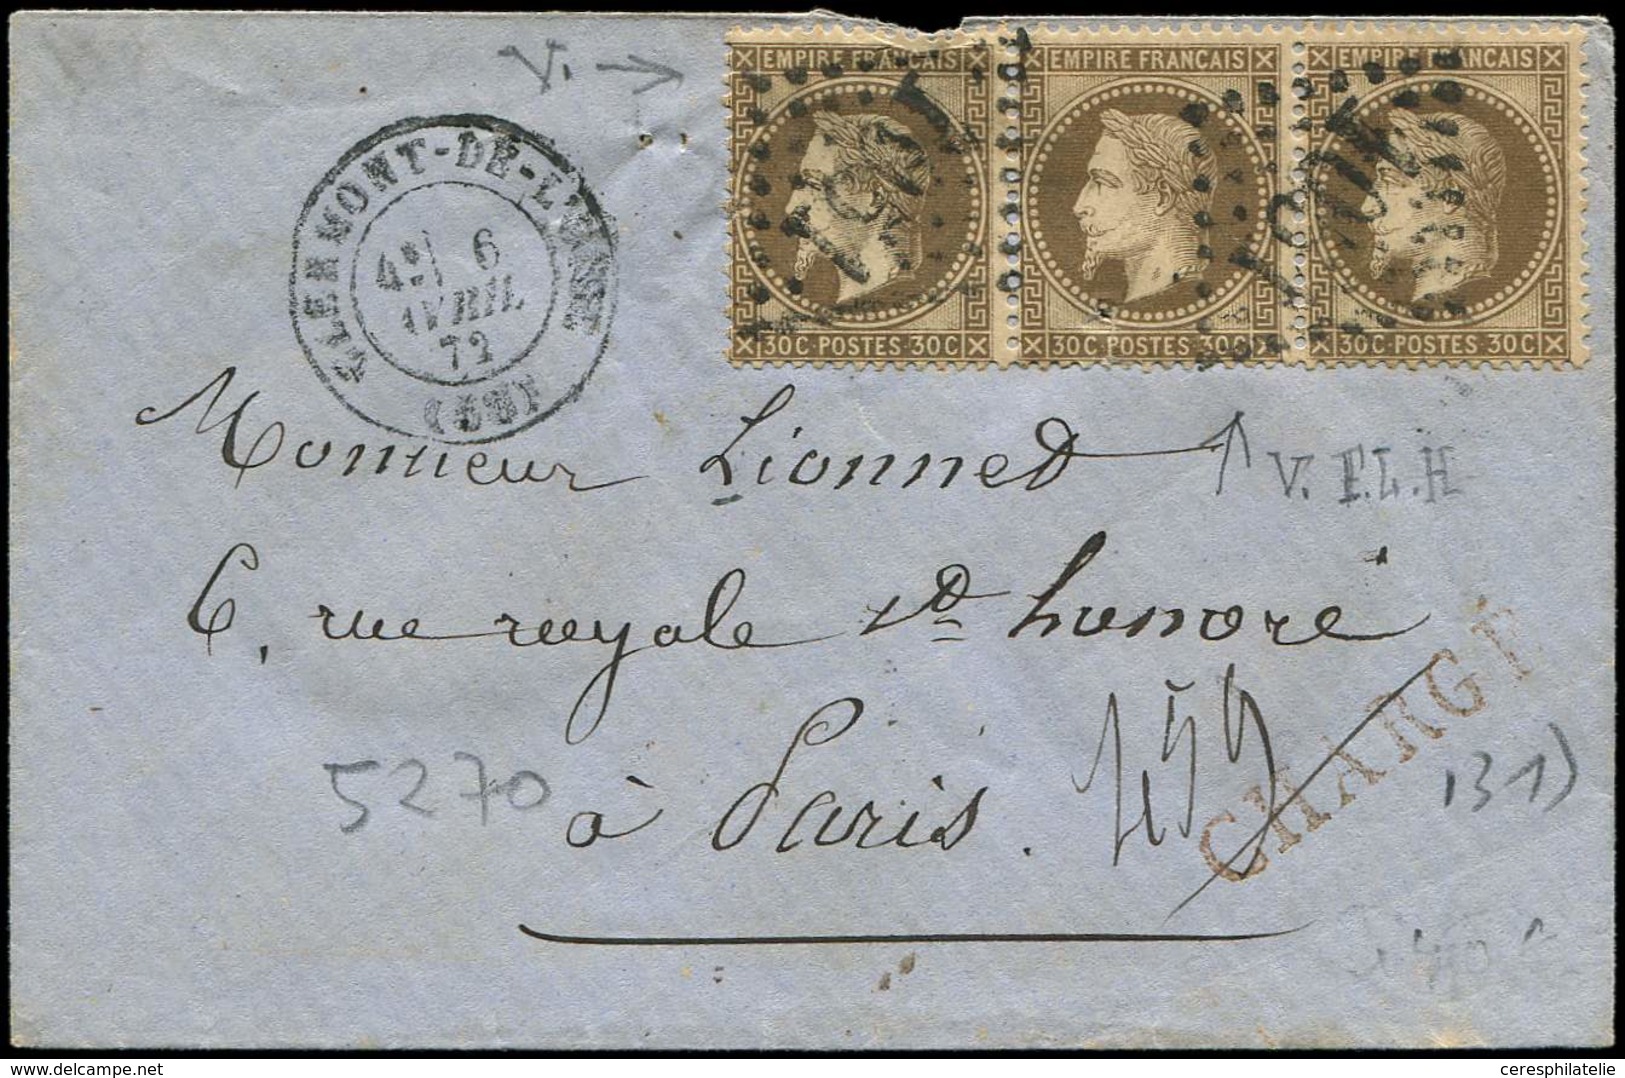 V. →
EMPIRE FRANCAIS
EMPIRE FRANÇAIS
EMPIRE FRANCAIS
30C·POSTES·30C
30C·POSTES·30C
30C·POSTES·30C
CLERMONT-DE-L'OISE
6
AVRIL
72
Monsieur Lionnet
V. F.L.H
6, rue royale St honoré
à Paris.
159
CHARGÉ
5270
131)
ceresphilatelie